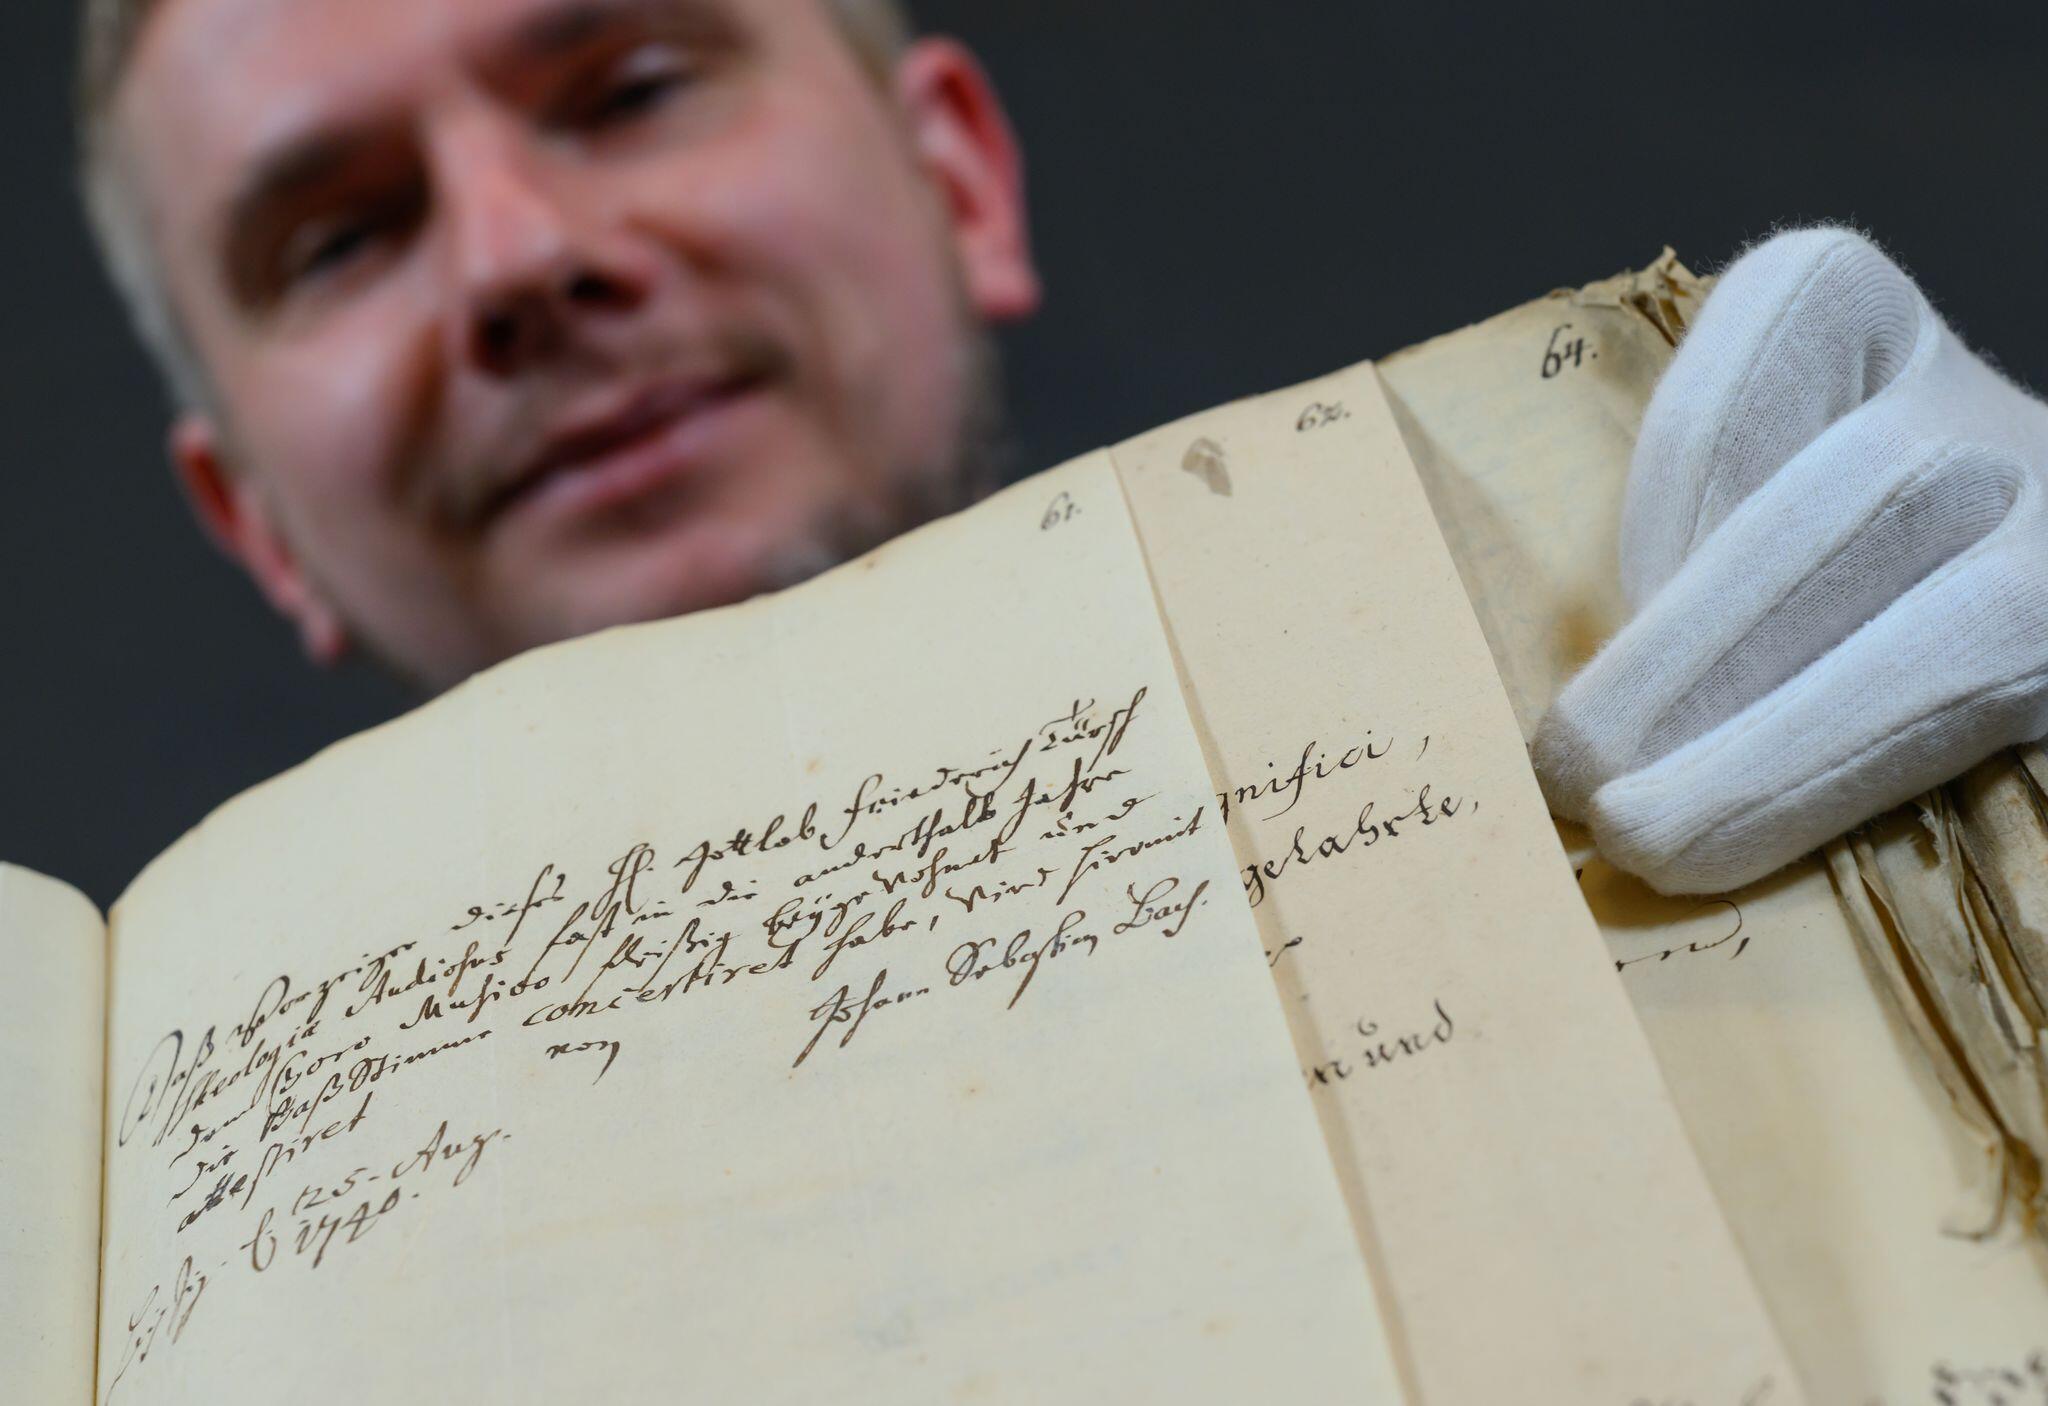 61.
62.
64.
Daß Vorzeiger dieses H. Gottlob Friedrich Türsch
Theologiæ Studiosus fast in die anderthalb Jahre
dem Choro Musico fleißig beÿgewohnet und
die BaßStimme concertiret habe, wird hiermit
attestiret von Johann Sebastian Bach.
Leipzig. d. 25. Aug.
1740.
gnifici,
gelahrte,
n und